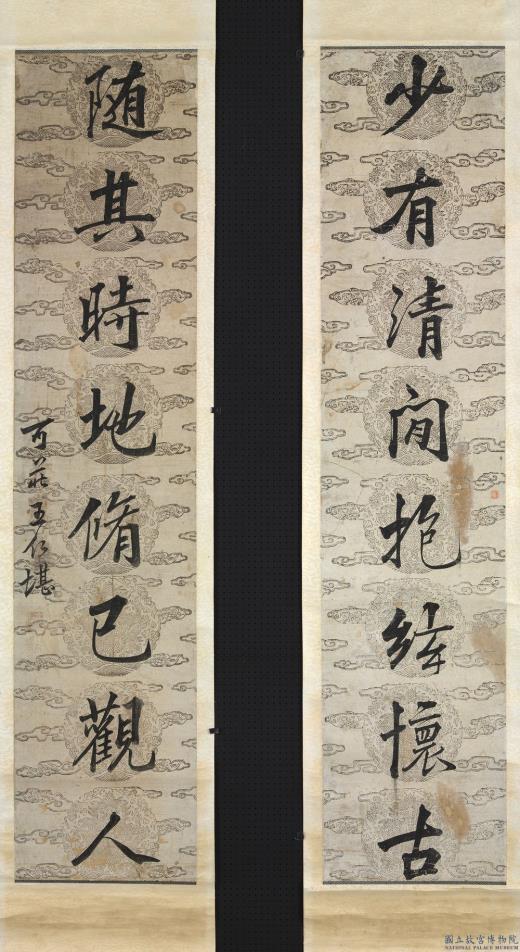 少有清閒抱弦懷古
隨其時地脩己觀人
可莊王仁堪
國立故宮博物院
NATIONAL PALACE MUSEUM